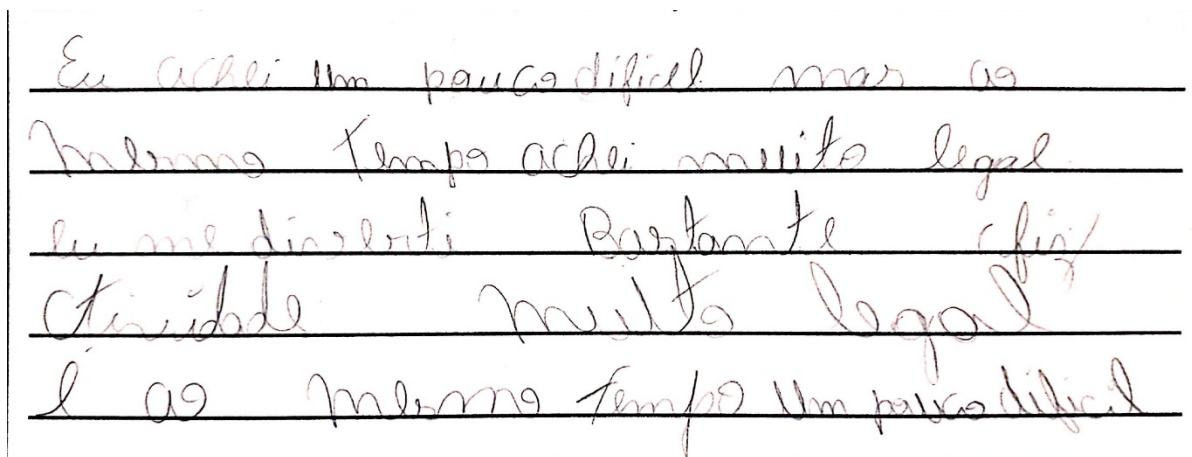 Eu achei um pouco dificel mas ao
mesmo tempo achei muito legal
eu me diverti Bastante (fiz/
Atividade muito legal
é ao mesmo tempo um pouco dificil